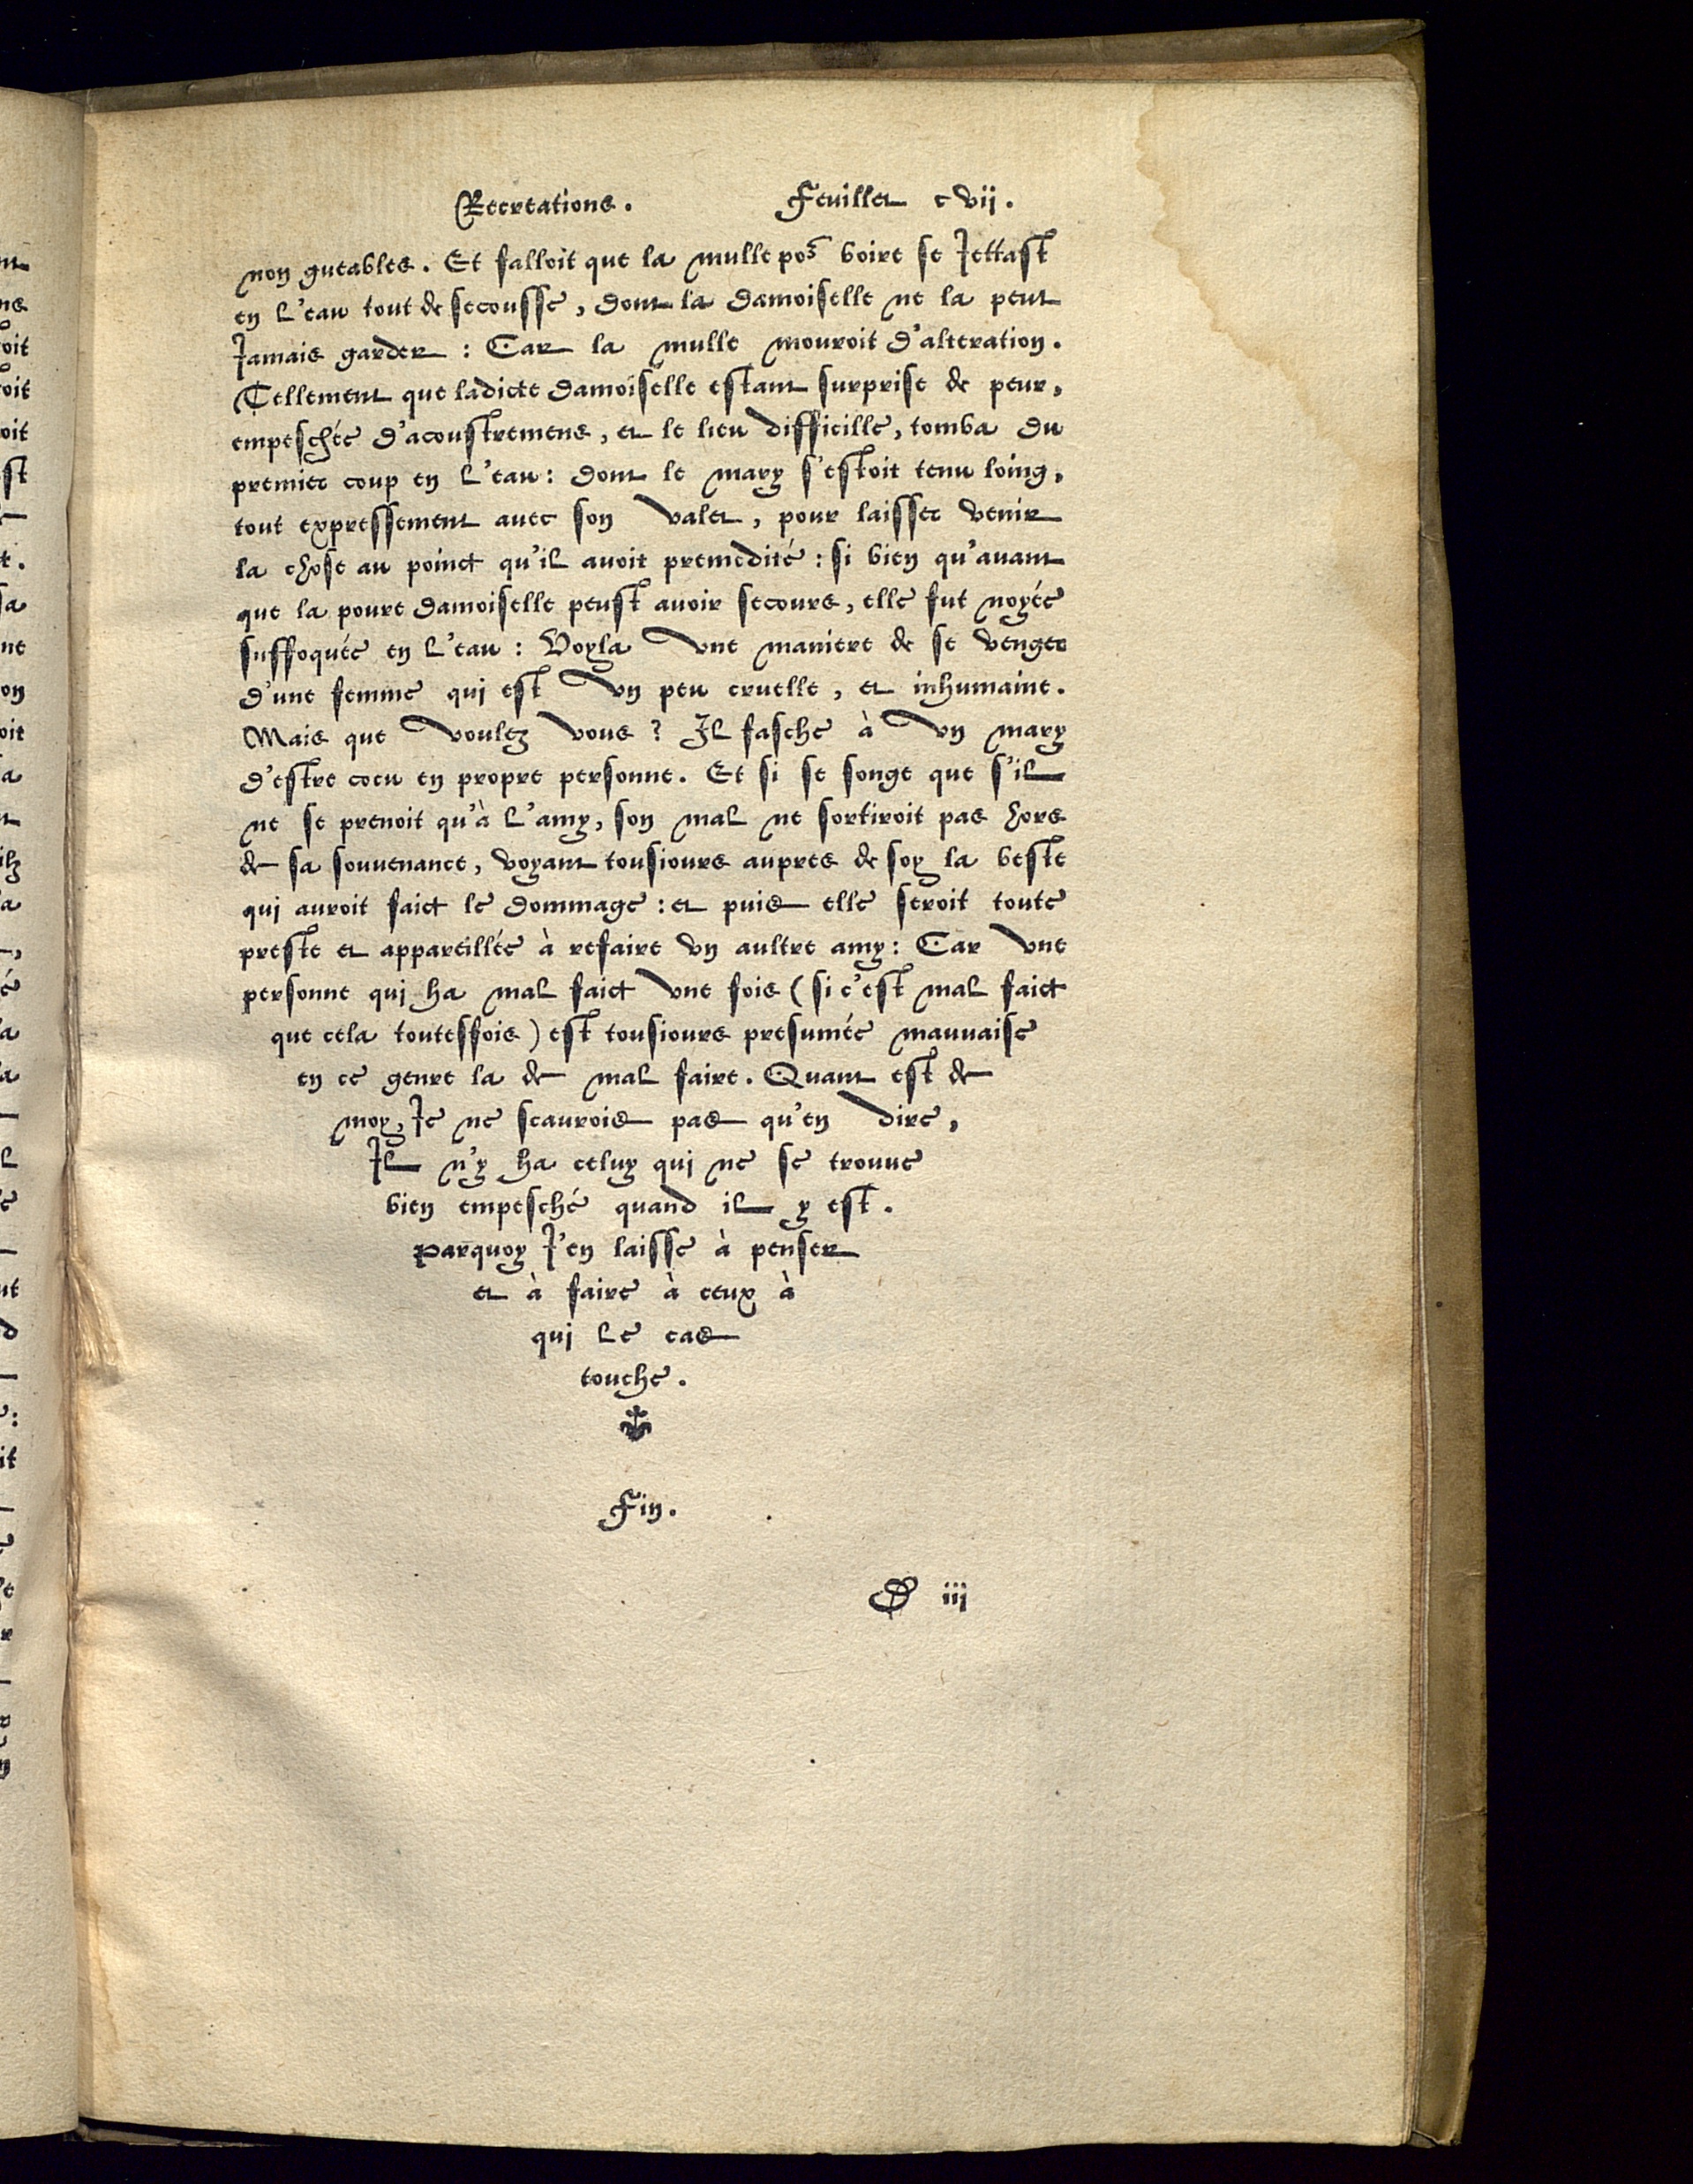 Recreations. Feuillet cvij.
non gueables. Et falloit que la mulle por boire se Jettast
en l'eau tout de secousse, dont la damoiselle ne la peut
Jamais garder : Car la mulle mouroit d'alteration.
Tellement que ladicte damoiselle estant surprise de peur,
empeschée d'acoustremens, et le lieu difficille, tomba du
premier coup en l'eau : dont le mary s'estoit tenu loing,
tout expressement auec son valet, pour laisser venir
la chose au poinct qu'il auoit premedité : si bien qu'auant
que la poure damoiselle peust auoir secours, elle fut noyée
suffoquée en l'eau : Voyla vne maniere de se venger
d'une femme qui est vn peu cruelle, et inhumaine.
Mais que voulez vous ? Il fasche à vn mary
d'estre cocu en propre personne. Et si se songe que s'il
ne se prenoit qu'à l'amy, son mal ne sortiroit pas hors
de sa souuenance, voyant tousiours aupres de soy la beste
qui auroit faict le dommage : et puis elle seroit toute
preste et appareillée à refaire vn aultre amy : Car vne
personne qui ha mal faict vne fois (si c'est mal faict
que cela toutesfois) est tousiours presumée mauuaise
en ce genre la de mal faire. Quant est de
moy, Je ne scaurois pas qu'en dire,
Il n'y ha celuy qui ne se trouue
bien empesché quand il y est.
Parquoy J'en laisse à penser
et à faire à ceux à
qui le cas
touche.
Fin.
D iij